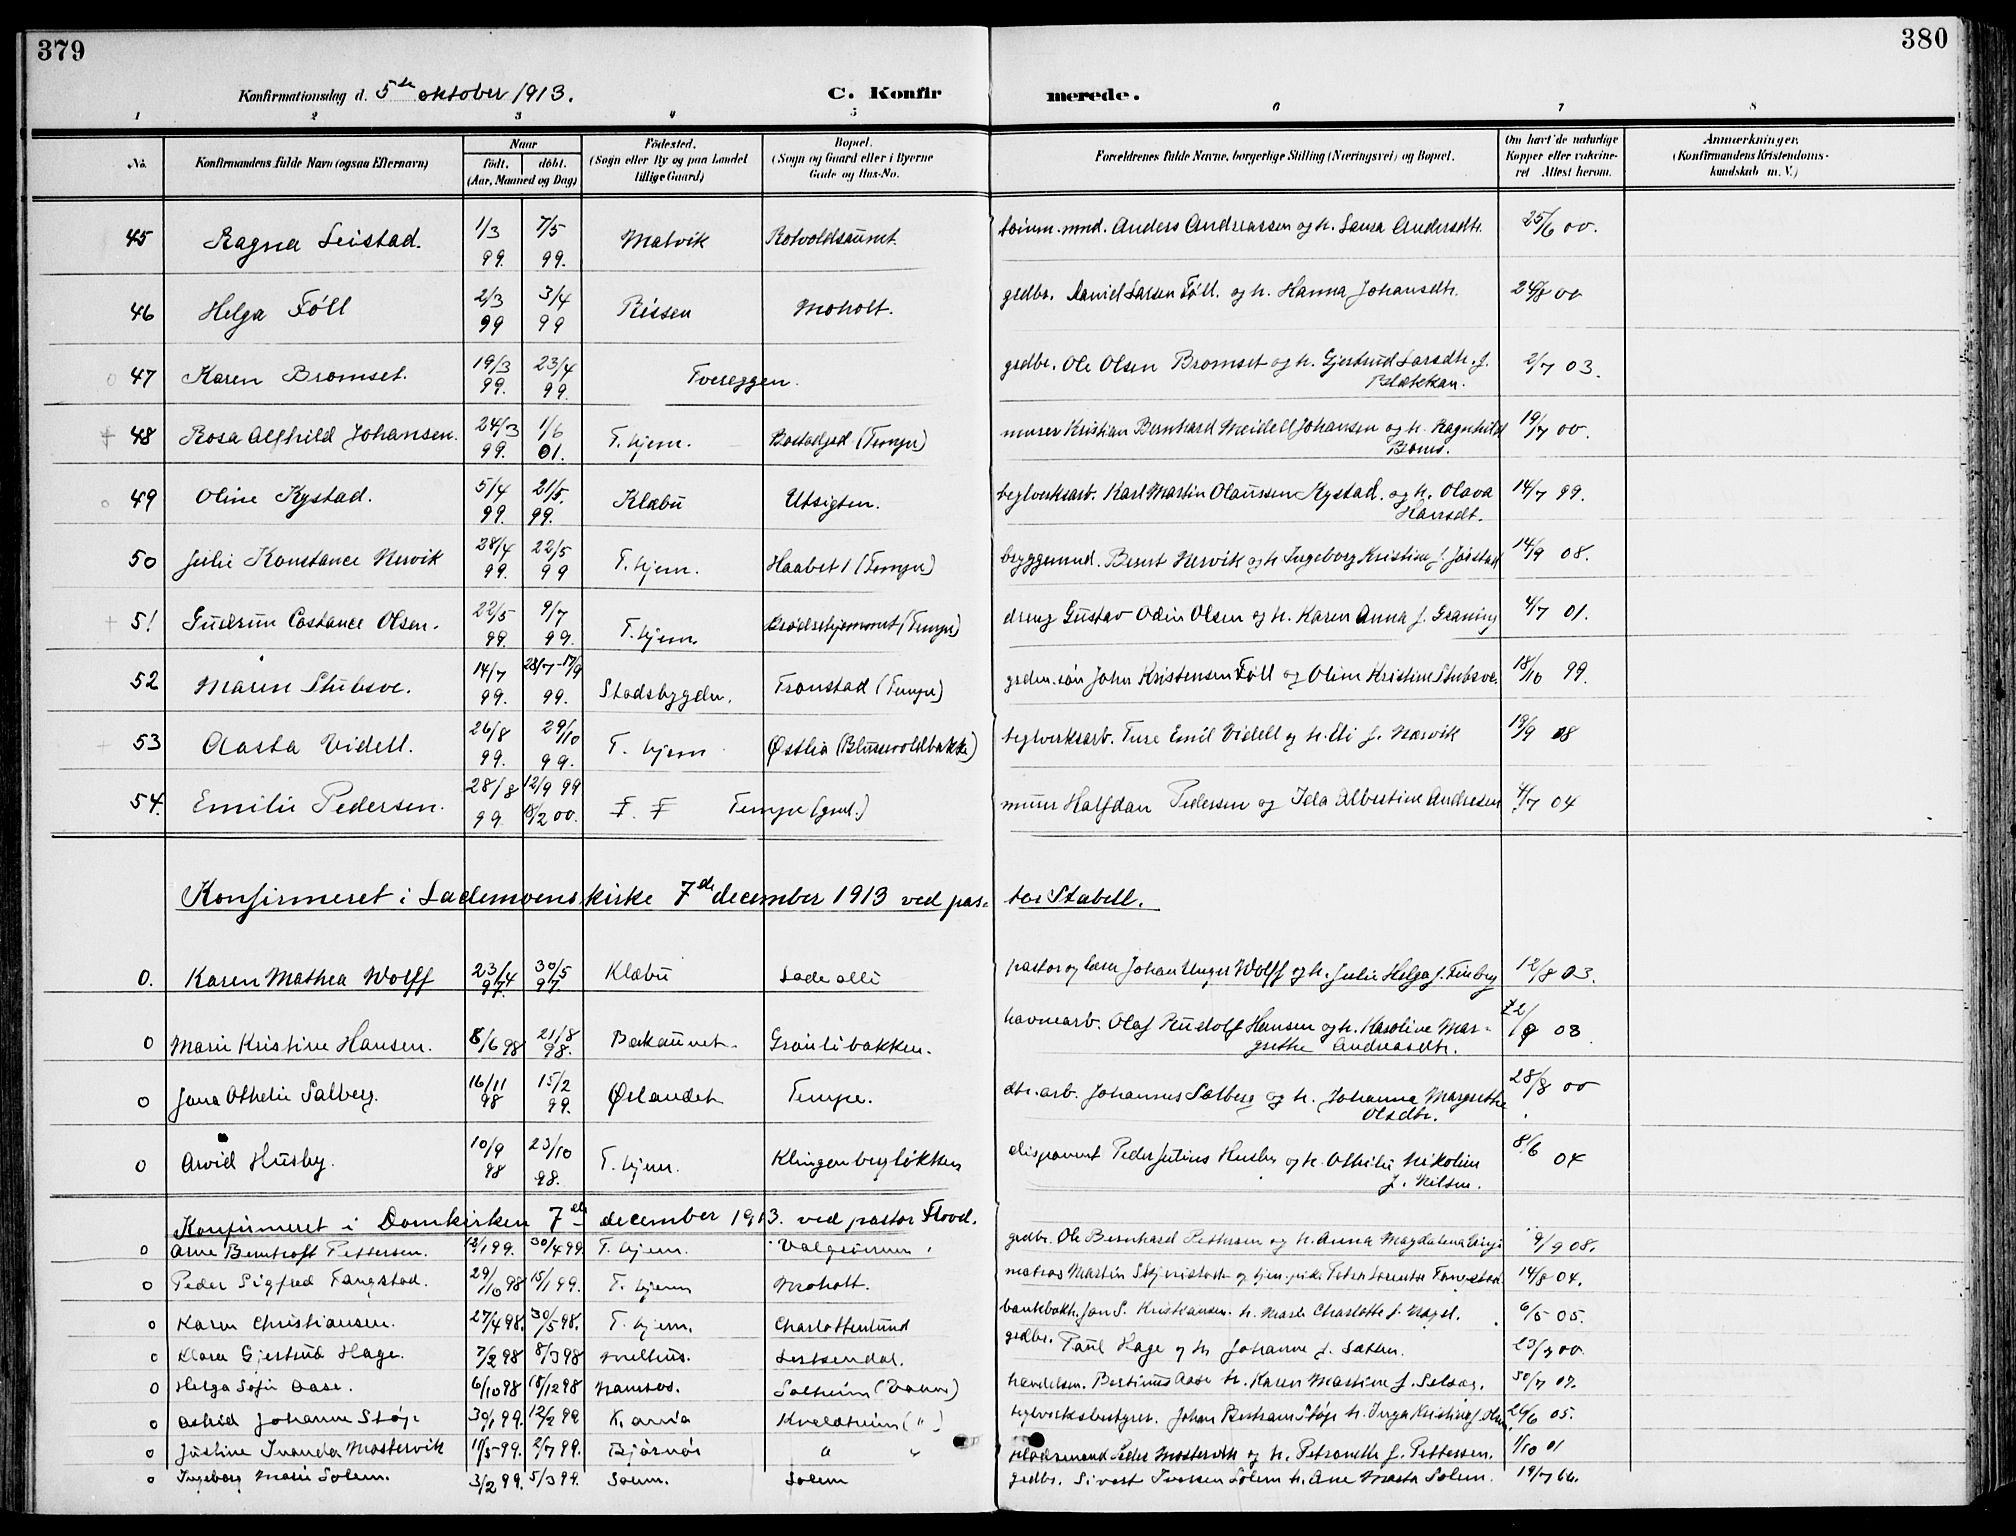 379
380
Konfirmationsdag d. 5te oktober 1913.
C. Konfir
merede.
1 2 3 4 5 6 7 8
No. Konfirmandens fulde Navn (ogsaa Efternavn) Naar födt. döbt. (Aar, Maaned og Dag) Födested. (Sogn eller By og paa Landet tillige Gaard) Bopæl. (Sogn og Gaard eller i Byerne Gade og Hus-No. Forældrenes fulde Navne, borgerlige Stilling (Næringsvei) og Bopæl. Om havt de naturlige Kopper eller vakcineret Attest herom. Anmærkninger. (Konfirmandens Kristendomskundskab m. V.)
45 Ragna Leistad. 1/3 99. 7/5 99. Malvik Rotvoldsaunet. tömm.mnd. Anders Andreassen og h. Laura Andersdtr. 25/6 00.
46 Helga Föll 2/3 99 3/4 99 Rissen Moholt. grdbr. Daniel Larsen Föll. og h. Hanna Johansdtr. 24/8 00
47 Karen Bromset. 19/3 99. 23/4 99. Tvereggen. grdbr. Ole Olsen Bromset og h. Gjertrud Larsdtr. f. Blækkan. 2/7 03.
48 Rosa Alfhild Johansen. 24/3 99. 1/6 01. T.hjem. Bostadjed (Tempe) murer Kristian Bernhard Meidell Johansen og h. Ragnhild 19/7 00.
49 Oline Kystad. 5/4 99. 21/5 99. Klæbu Utsigten. teglverksarb. Karl Martin Olaussen Kystad. og h. Olava Hansdt. 14/7 99.
50 Julie Konstance Nervik 28/4 99. 22/5 99 T.hjem. Haabet 1 (Tempe) bryggemnd. Bernt Nervik og h. Ingeborg Kristine f. Jöistad 14/9 08.
51 Gudrun Costance Olsen. 22/5 99. 9/7 99. T.hjem. Brödrehjemmet (Tempe) dreng Gustav Odin Olsen og h. Karen Anna f. Graning 4/7 01.
52 Maren Stubsve. 14/7 99. 28/7-17/9 99. Stadsbygden. Tronstad (Tempe) grdm.sön John Kristensen Föll og Oline Kristine Stubsve. 18/10 99.
53 Aasta Videll. 26/8 99. 29/10 99. T. hjem Østlia (Blussevoldbakke) teglverksarb. Ture Emil Videll og h. Eli f. Nervik 19/9 08
54. Emilie Pedersen. 28/8 99. 12/9 99 18/2 00. F. F Tempe (grd.) murer Halfdan Pedersen og Ida Albertine Andresen 4/7 04
Konfirmeret i Lademoens kirke 7de december 1913 ved pastor Stabell.
0. Karen Mathea Wolff 23/4 97. 30/5 97. Klæbu Lade alle pastor og lærer Johan Unger Wolff og h. Julie Helga f. Finberg 12/8 03.
0 Marie Kristine Hansen. 8/6 98 21/8 98. Bakaunet. Granlibakken. havnearb. Olaf Rudolf Hansen og h. Karoline Margrethe Andreasdtr. 08
0 Jana Othelie Salberg. 16/11 98 15/2 99. Ørlandet Tempe. arb. Johannes Salberg og h. Johanna Margrethe Olsdtr. 28/8 00
0 Arvid Husby. 10/9 98 23/10 98. T. hjem. Klingenbergløkken disponent Peder Julius Husby og h. Othilie Nikoline f. Nilsen. 8/6 04
Konfirmeret i Domkirken 7de december 1913. ved pastor Flood.
0 Arne Berntroft Pettersen. 12/1 99. 30/4 99. T. hjem. Valgrinnen. grdbr. Ole Bernhard Pettersen og h. Anna Magdalena 9/9 08.
0 Peder Sigfred Fangstad. 29/10 98 15/1 99. T. hjem Moholt. matros Martin og tjen.pike Petra Lorentse Fangstad 14/8 04.
0 Karen Christiansen. 27/4 98. 30/5 98. T. hjem. Charlottenlund bankbokh. Jan S. Kristiansen. h. Marie Charlotte f. Nagel. 6/5 05.
0 Klara Gjertrud Hage. 7/2 98 8/3 98 Melhus. Lerkendal. grdbr. Paul Hage og h. Johanne f. Sæther. 23/7 00.
0 Helga Sofie Aase. 6/10 98 18/12 98 Namsos. Solheim handelsm. Bertinus Aase h. Karen Martine f. Selsaas. 30/7 07.
0 Astrid Johanne Støp 30/1 99. 12/2 99 K.ania Kveldheim ( " ) teglverksbestyrer. Johan Bertram Støp h. Inga Kristine f. Olsen 26/6 05.
0 Justine Ivanda Mostervik 11/5 99. 2/7 99. Bjørnör " " Peder Mostervik og h. Petronelle f. Pettersen. 1/10 01
0 Ingeborg Marie Solem. 3/2 99. 5/3 99. Solem. Solem grdbr. Sivert Iversen Solem h. Ane Marta Solem. 19/7 66.